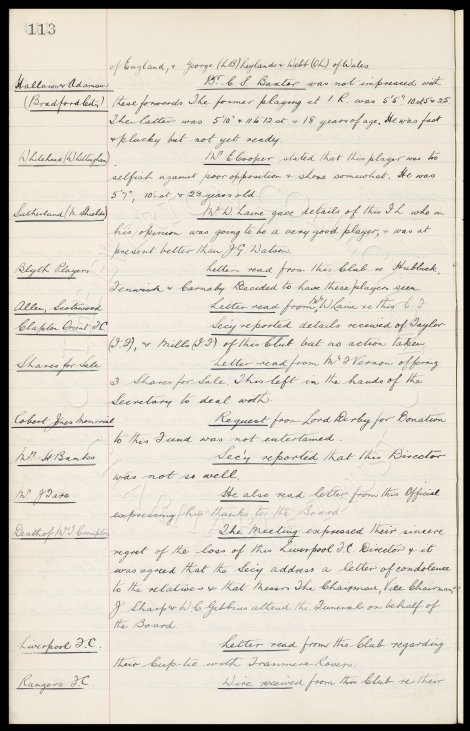 113
of England, & George (L.B) Leylands & Webb (O.L) of Wales
Hallows & Adamson Dr. C. S. Baxter was not impressed with
(Bradford City) these forwards The former playing at I.R. was 5'5" 10st 5 & 25.
The latter was 5'10" & 11st 12 at 18 years of age. He was fast
& plucky but not yet ready.
Whitehead (Whittingham) Mr E Cooper stated that this player was too
selfish against poor opposition & shone somewhat. He was
5'7", 10½ st & 23 years old.
Sutherland (N. Shields) Mr W. Lane gave details of this I L who in
his opinion was going to be a very good player, & was at
present better than J.G. Watson.
Blyth Players Letters read from this Club re Hubbuck,
Fenwick & Carnaby Decided to have these players seen
Allen, Scotswood Letter read from Mr W Lane re this C F
Clapton Orient F.C Secy reported details received of Taylor
& Mills of this Club but no action taken.
Shares for Sale Letter read from Mr F Vernon offering
3 Shares for Sale. This left in the hands of the
Secretary to deal with
Jones Memorial Request from Lord Derby for Donation
to this Fund was not entertained.
Mr H Banks Sec'y reported that this Director
was not so well.
Mr J Fare He also read letter from this Official
expressing his thanks to the Board
Death of Mr J Crompton The Meeting expressed their sincere
regret of the loss of this Liverpool F.C. Director & it
was agreed that the Secy address a letter of condolence
to the relatives & that Messrs The Chairman, Vice Chairman
J. Sharp & W C Gibbins attend the Funeral on behalf of
the Board.
Liverpool F.C. Letter read from this Club regarding
their Cup-tie with Tranmere Rovers.
Rangers F.C. Wire received from this Club re their